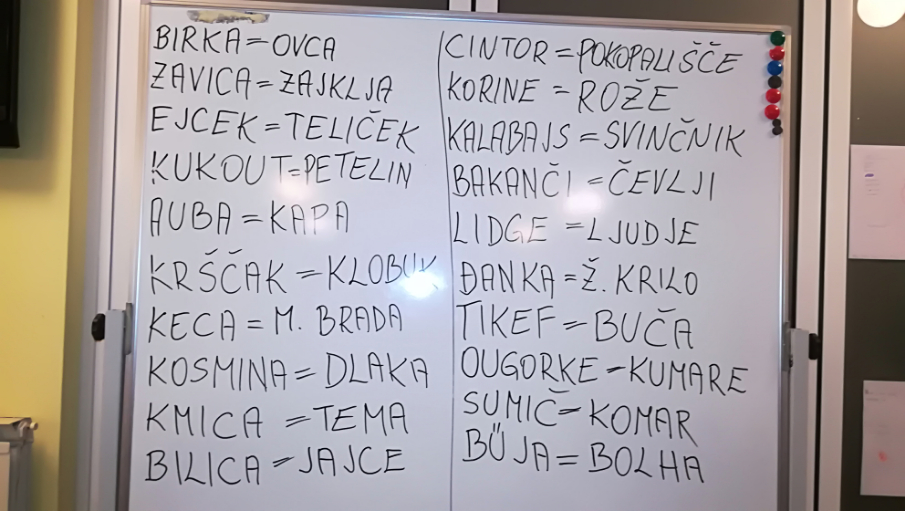 BIRKA=OVCA
ZAVICA=ZAJKLJA
EJCEK=TELIČEK
KUKOUT=PETELIN
AUBA=KAPA
KRŠČAK=KLOBUK
KECA=M. BRADA
KOSMINA=DLAKA
KMICA=TEMA
BILICA=JAJCE
CINTOR=POKOPALIŠČE
KORINE=ROŽE
KALABAJS=SVINČNIK
BAKANČI=ČEVLJI
LIDGE=LJUDJE
ĐANKA=Ž. KRILO
TIKEF=BUČA
OUGORKE-KUMARE
SUMIČ-KOMAR
BÜJA=BOLHA